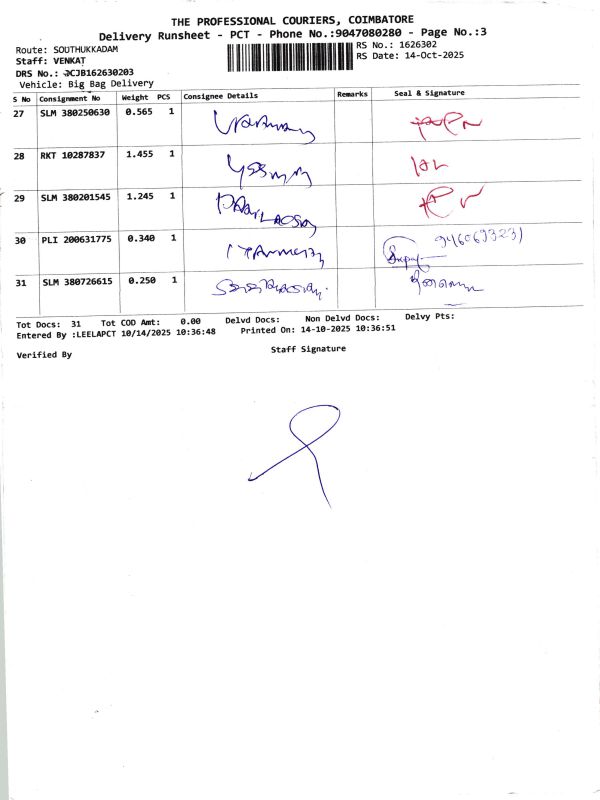 THE PROFESSIONAL COURIERS, COIMBATORE
Delivery Runsheet - PCT - Phone No.:9047080280 - Page No.:3
Route: SOUTHUKKADAM
RS No.: 1626302
Staff: VENKAT
RS Date: 14-Oct-2025
DRS No.: DCJB162630203
Vehicle: Big Bag Delivery
S No Consignment No Weight PCS Consignee Details Remarks Seal & Signature
27 SLM 380250630 0.565 1
28 RKT 10287837 1.455 1
29 SLM 380201545 1.245 1
30 PLI 200631775 0.340 1
31 SLM 380726615 0.250 1
Tot Docs: 31 Tot COD Amt: 0.00 Delvd Docs: Non Delvd Docs: Delvy Pts:
Entered By :LEELAPCT 10/14/2025 10:36:48 Printed On: 14-10-2025 10:36:51
Verified By Staff Signature